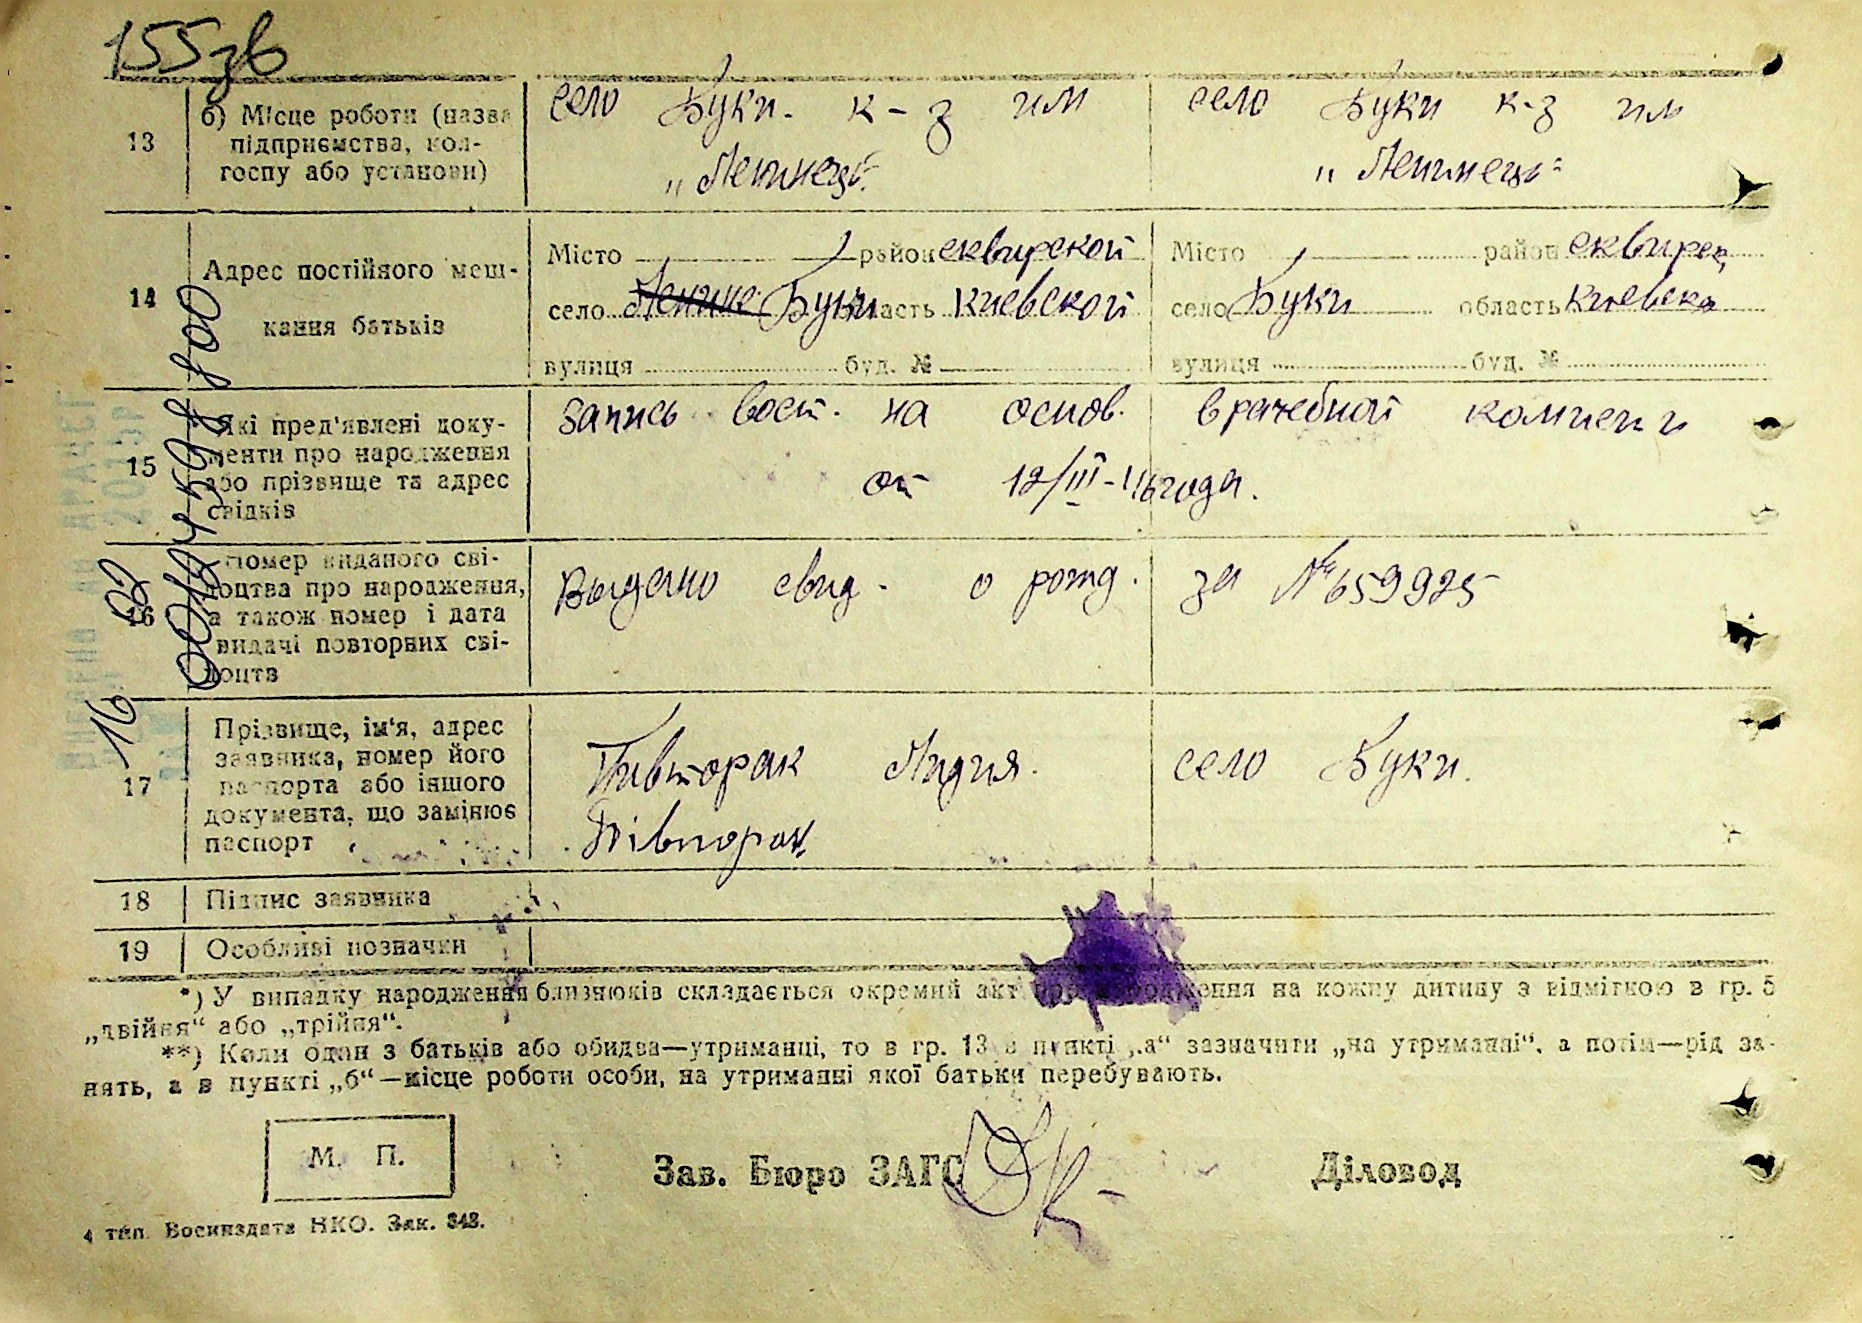 155зв
13 б) Місце роботи (назва підприємства, кол-госпу або установи)
село Буки. к-з им „Ленинець“
село Буки к-з им „Ленинець“
14 Адрес постійного меш-кання батьків
Місто район сквирской
село Ленине Буки область Киевской
вулиця буд. №
Місто район сквирск
село Буки область Киевска
вулиця буд. №
15 Які пред'явлені доку-
менти про народження
або прізвище та адрес
свідків
запись вост. на основ. врачебной комисии
от 12/III-46 года.
16 Номер виданого сві-
доцтва про народження,
а також номер і дата
видачі повторних сві-
доцтв
Выдано свид. о рожд. за № 659925
17 Прізвище, ім'я, адрес
заявника, номер його
паспорта або іншого
документа, що замінює
паспорт
Пивторак Лидия. село Буки.
Півторак
18 Підпис заявника
19 Особливі позначки
*) У випадку народження близнюків складається окремий акт про народження на кожну дитину з відміткою в гр. 5
„двійня“ або „трійня“.
**) Коли один з батьків або обидва—утриманці, то в гр. 13 в пункті „а“ зазначити „на утриманні“, а потім—рід за-
нять, а в пункті „б“—місце роботи особи, на утриманні якої батьки перебувають.
М. П.
Зав. Бюро ЗАГС
Діловод
4 тип. Воениздата НКО. Зак. 343.